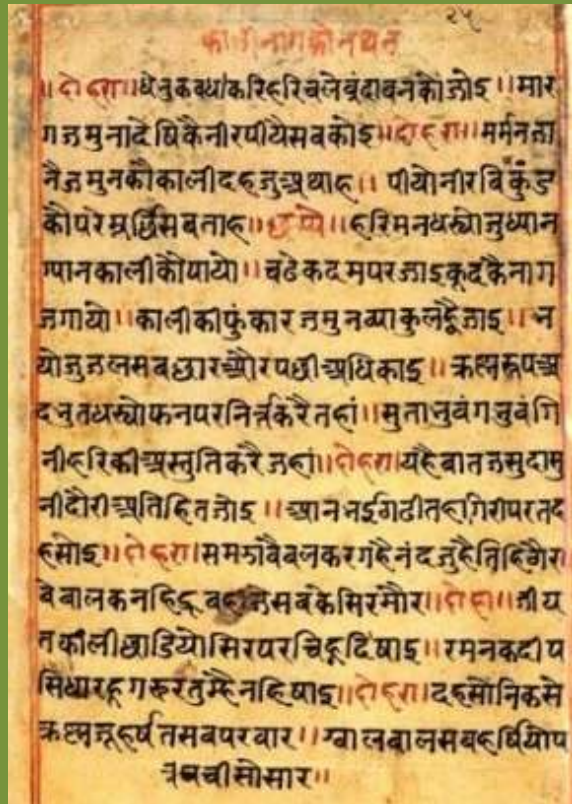 २५
कालीनागकोनथन
॥दोहरा॥धेनुकबधीकरिहरिचलेबृंदाबनकोजोइ॥मार
गजमुनादेषिकैनीरपीयैसबकोइ॥दोहरा॥मर्मनजा
नैजमुनकौकालीदहजुअथाह॥पीयोनीरबि
कौपरेमूर्छिसबताह॥छप्पे॥हरिमनधर्‍योजुध्यान
ग्यानकालीकौपायो॥चढेकदमपरजाइकूदकैनाग
जगायो॥कालीकीफुंकारजमुनब्याकुलह्वैजाइ॥भ
योजुजलसबछारऔरपछीअधिकाइ॥क्रष्नरूपअ
दभुतधर्‍योफनपरनिर्त्तकरैतहां॥सुताभुवंगभुवंगि
नीहरिकीअस्तुतिकरैजहां॥दोहरा॥यहैबातजसुदासु
नीदौरीअतिहितजोइ॥आनभईगढीतहागिरीपरतद
हसोइ॥दोहरा॥समझावैबलकरगहैनंदजुहैतिहिगैर
वेबालकनहिहैसबकेसिरमौर॥दोहा॥जीय
तकालीछाडियोसिरपरचिह्नदिषाइ॥रमनकदीप
सिधारहूगरुरतुम्हैनहिषाइ॥दोहरा॥दहसौनिकसे
क्रष्नजूहर्षतसबपरवार॥ग्वालबालसबहर्षियोप
सोसार॥